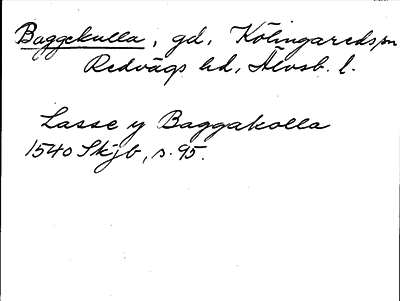 Baggekulla, gd, Kölingareds sn
Redvägs hd, Älvsb. l.
Lasse y Baggakolla
1540 Skjb, s. 95.